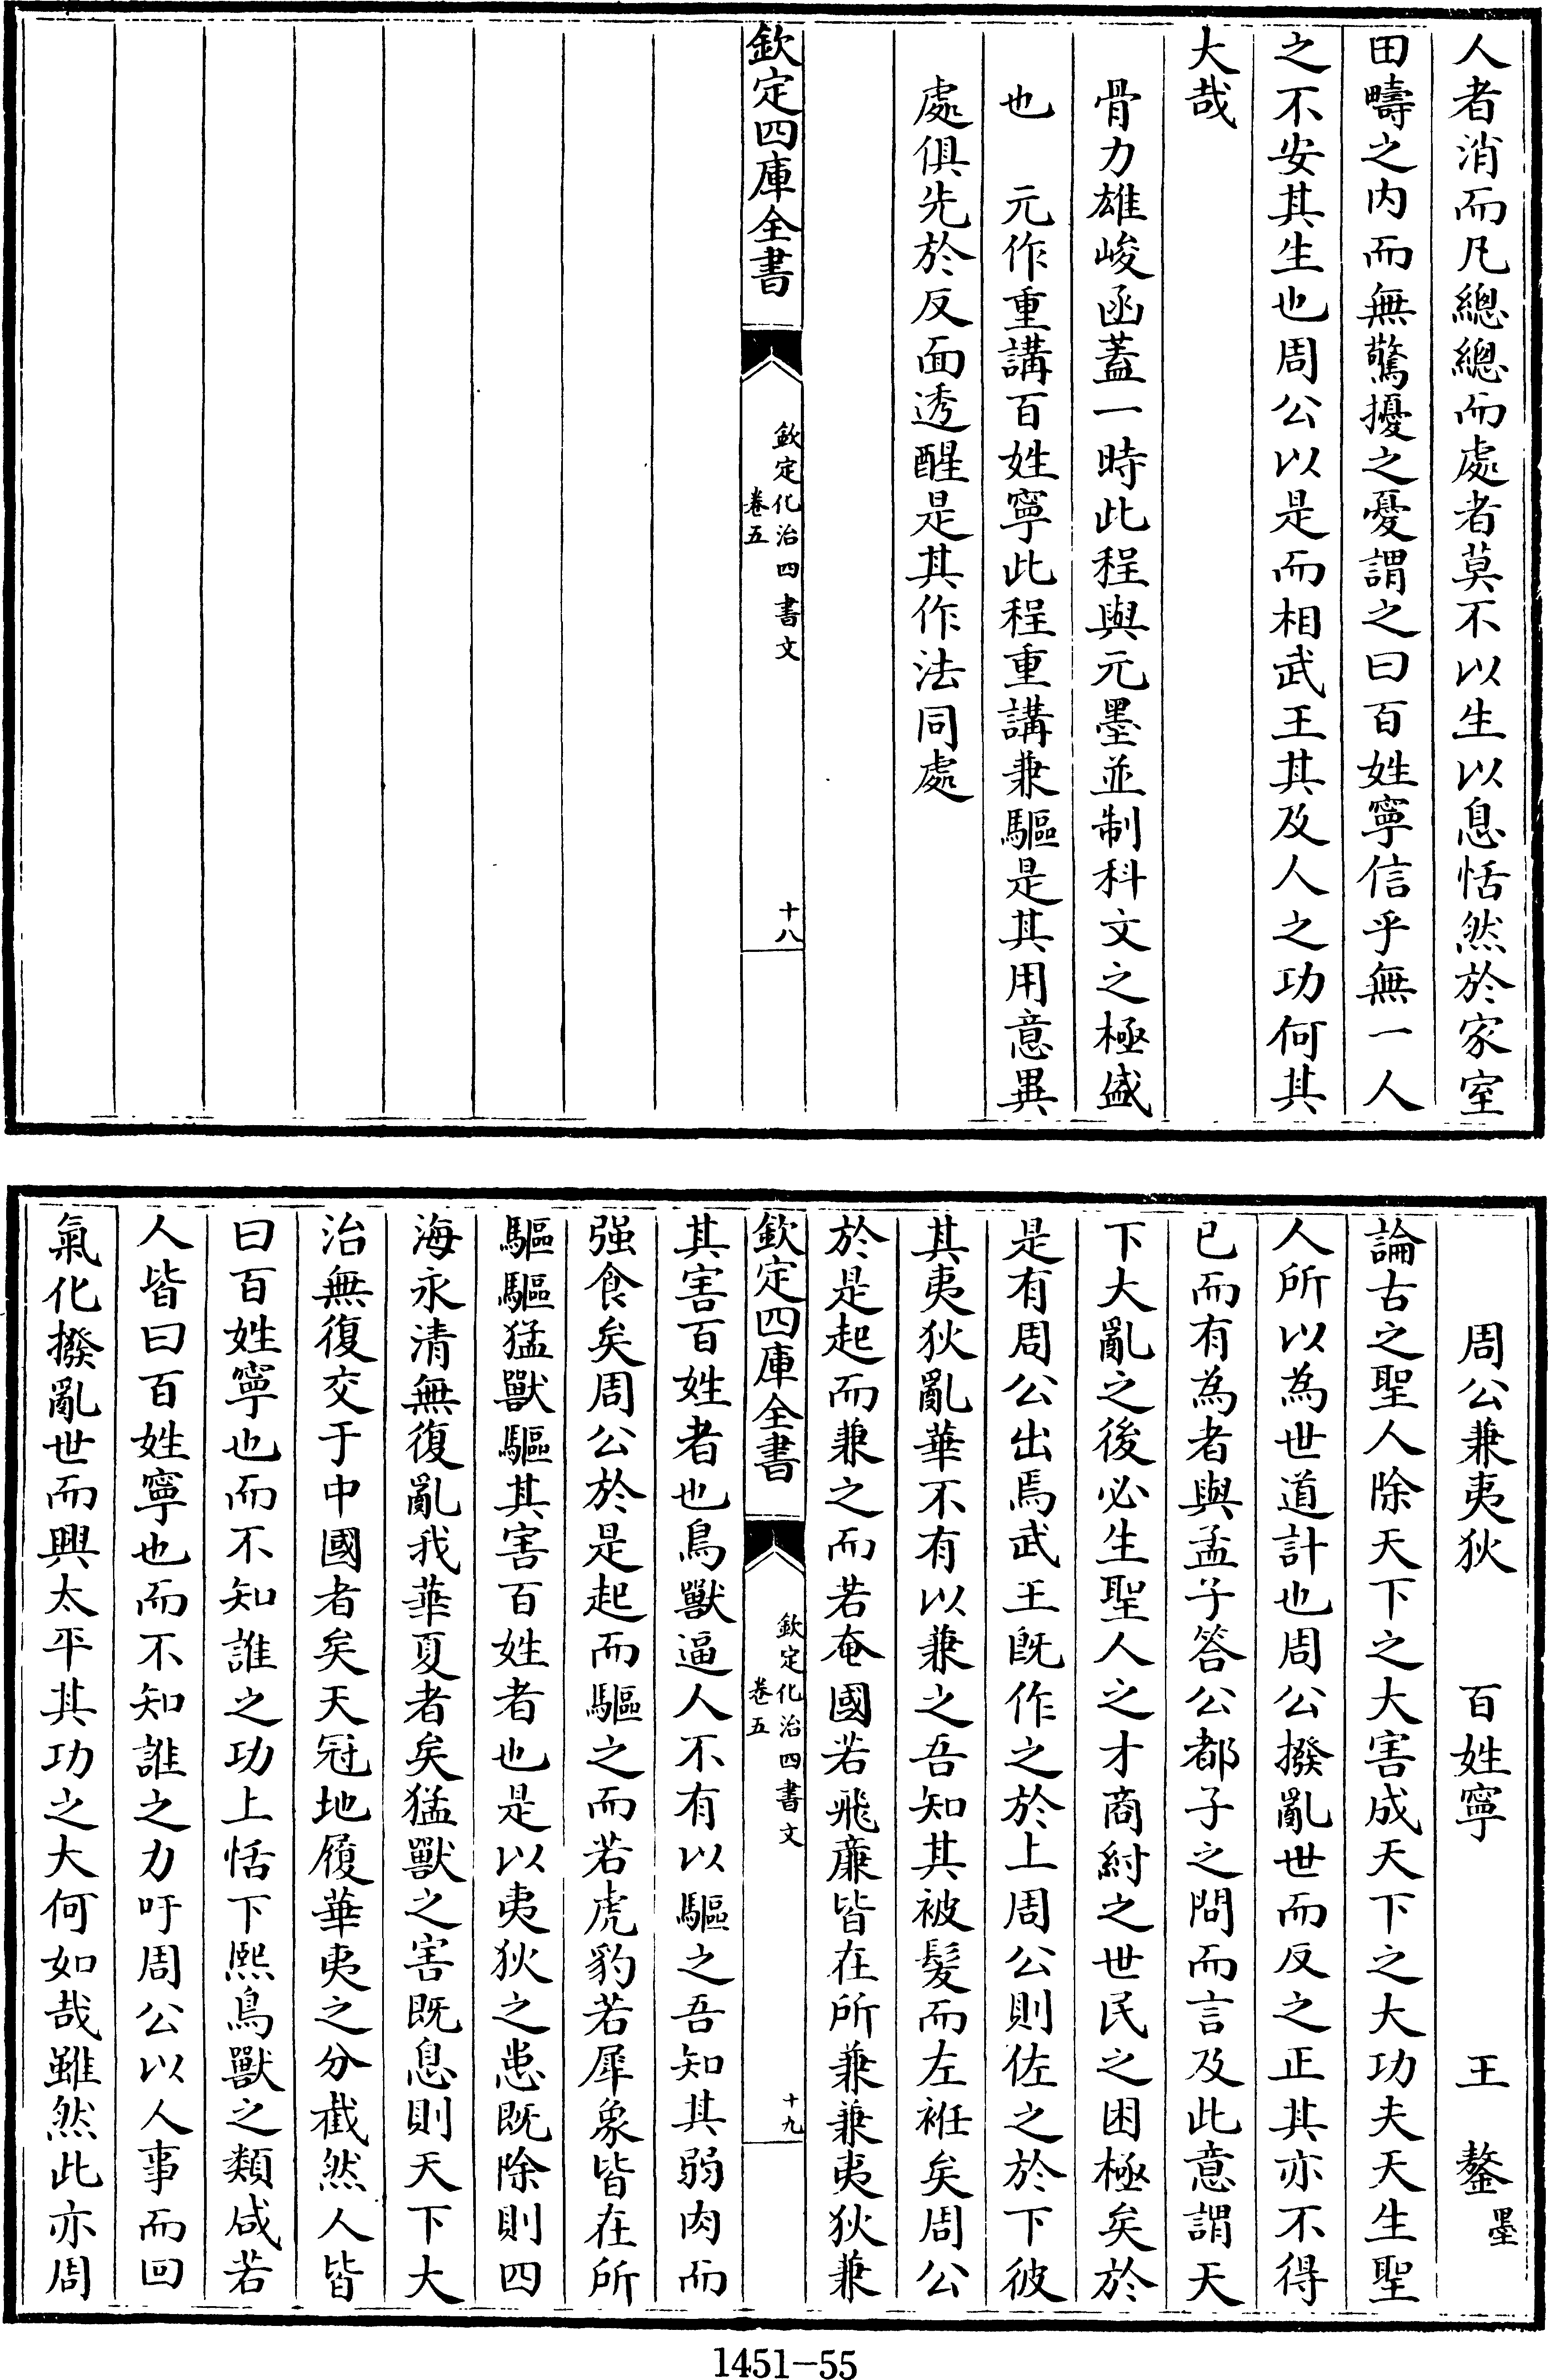 人者消而凡總總而處者莫不以生以息恬然於家室
田疇之内而無驚擾之憂謂之曰百姓寧信乎無一人
之不安其生也周公以是而相武王其及人之功何其
大哉
骨力雄峻函蓋一時此程與元墨並制科文之極盛
也　元作重講百姓寧此程重講兼驅是其用意異
處俱先於反面透醒是其作法同處
欽定四庫全書
欽定化治四書文
卷五
十八
周公兼夷狄　百姓寧　王鏊墨
論古之聖人除天下之大害成天下之大功夫天生聖
人所以為世道計也周公撥亂世而反之正其亦不得
已而有為者與孟子答公都子之問而言及此意謂天
下大亂之後必生聖人之才商紂之世民之困極矣於
是有周公出焉武王既作之於上周公則佐之於下彼
其夷狄亂華不有以兼之吾知其被髮而左衽矣周公
於是起而兼之而若奄國若飛廉皆在所兼兼夷狄兼
欽定四庫全書
欽定化治四書文
卷五
十九
其害百姓者也鳥獸逼人不有以驅之吾知其弱肉而
强食矣周公於是起而驅之而若虎豹若犀象皆在所
驅驅猛獸驅其害百姓者也是以夷狄之患既除則四
海永清無復亂我華夏者矣猛獸之害既息則天下大
治無復交于中國者矣天冠地履華夷之分截然人皆
曰百姓寧也而不知誰之功上恬下熙鳥獸之類咸若
人皆曰百姓寧也而不知誰之力吁周公以人事而回
氣化撥亂世而興太平其功之大何如哉雖然此亦周
1451-55